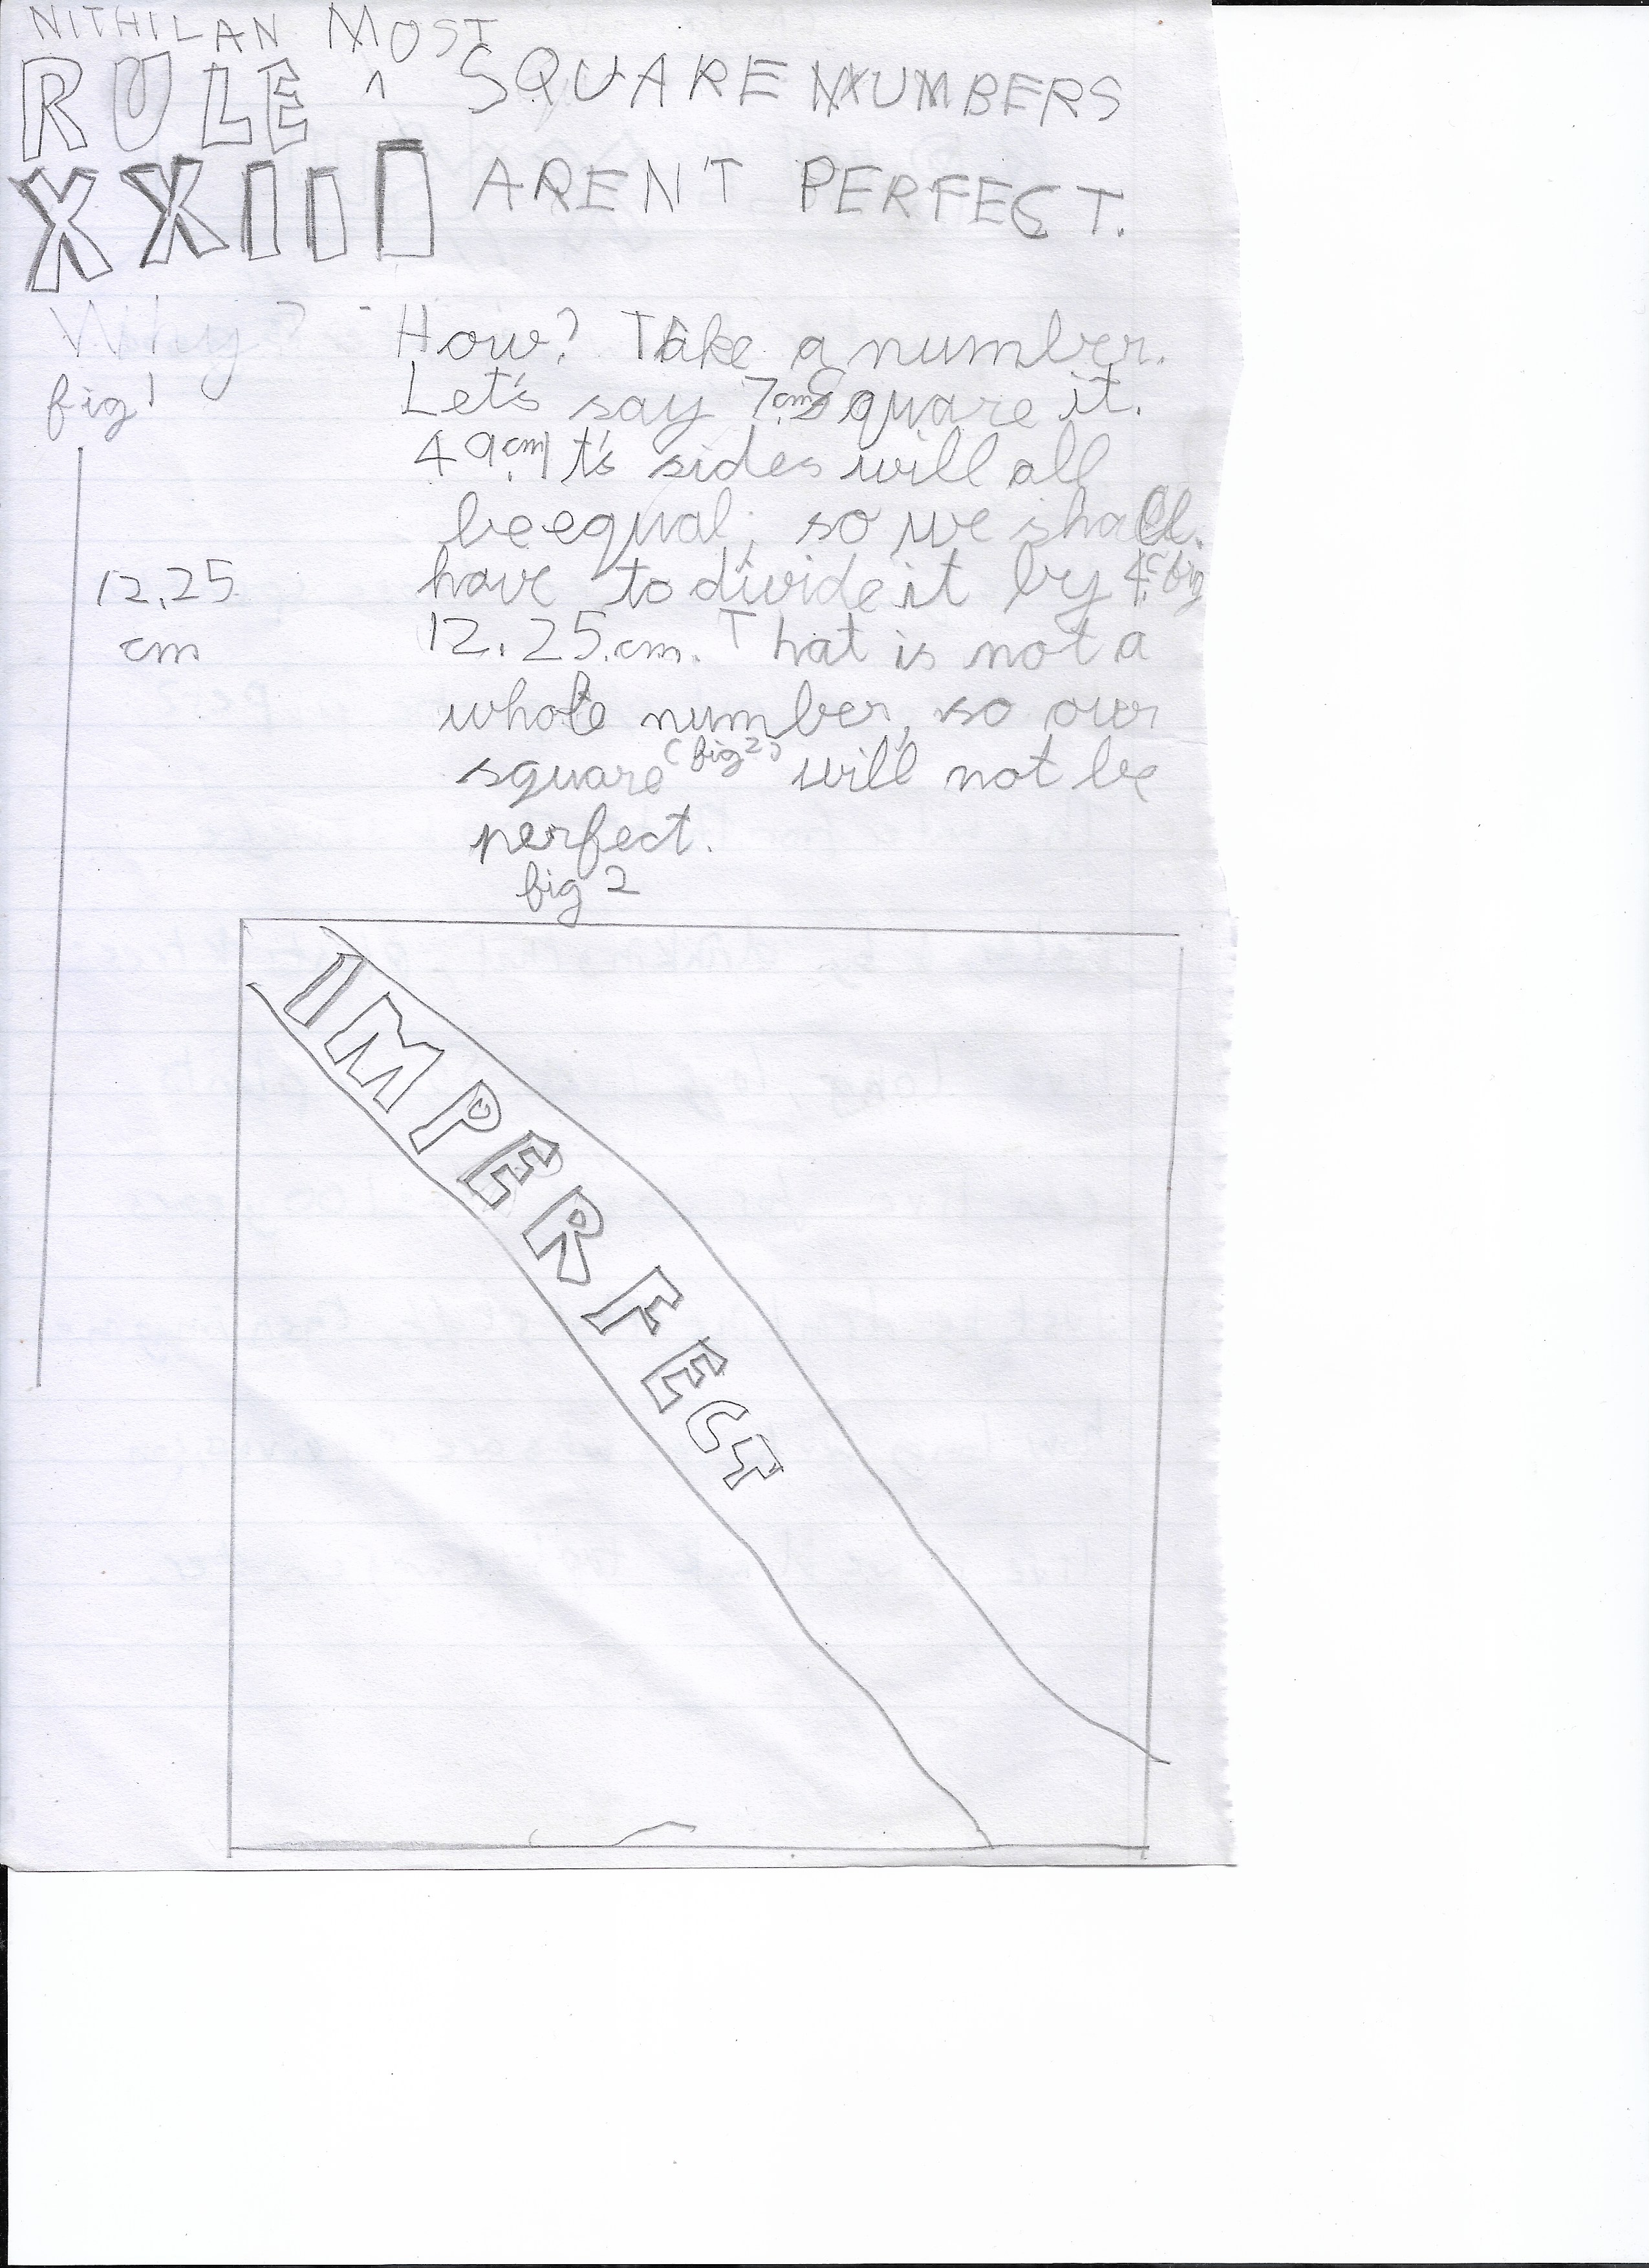 NITHILAN MOST
RULE ^ SQUARE NUMBERS
XXIII AREN'T PERFECT.
Why? - How? Take a number.
fig 1 Let's say 7cm Square it.
49cm It's sides will all
be equal; so we shall
12.25 have to divide it by 4. (fig
cm 12.25 cm. That is not a
whole number, so our
square (fig 2) will not be
perfect.
fig 2
IMPERFECT